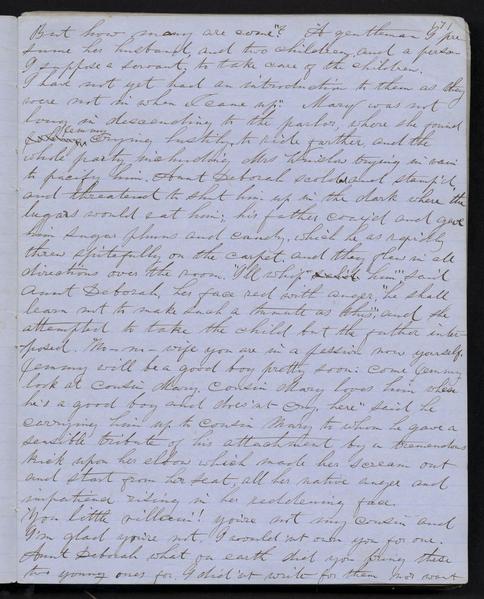 171
But how many are come"? "A gentleman I pre
sume her husband, and two children, and a person
I suppose a servant, to take care of the children.
I had not yet had an introduction to them as they
were not in when I came up". Mary was not
long in descending to the parlor, where she found
Jemmy crying lustily to ride farther and the
whole party including Mrs trying in vain
to pacify him. Aunt Deborah scolded and stamp'd,
and threatend to shut him up in the dark where the
bugars would eat him; his father coax'd and gave
him sugar plums and candy, which he as rapidly
threw spitefully on the carpet, and they flew in all
directions over the room. "I'll whip him" said
Aunt Deborah, her face red with anger, "he shall
learn not to make such a tumult as this", and she
attempted to take the child but the father inter-
posed. M-m- wife you are in a passion now yourself.
Jemmy will be a good boy pretty soon: come Jemmy
look at cousin Mary. Cousin Mary loves him when
he's a good boy and does'nt cry, here" said he
carrying him up to cousin Mary to whom he gave a
sensible tribute of his attachment by a tremendous
kick upon her elbow which made her scream out
and start from her seat, all her native anger and
impatience rising in her reddening face.
"You little villain"! you're not my cousin and
I'm glad you're not. I would'nt own you for one.
Aunt Deborah what on earth did you bring these
two young ones for. I did'nt write for them nor want